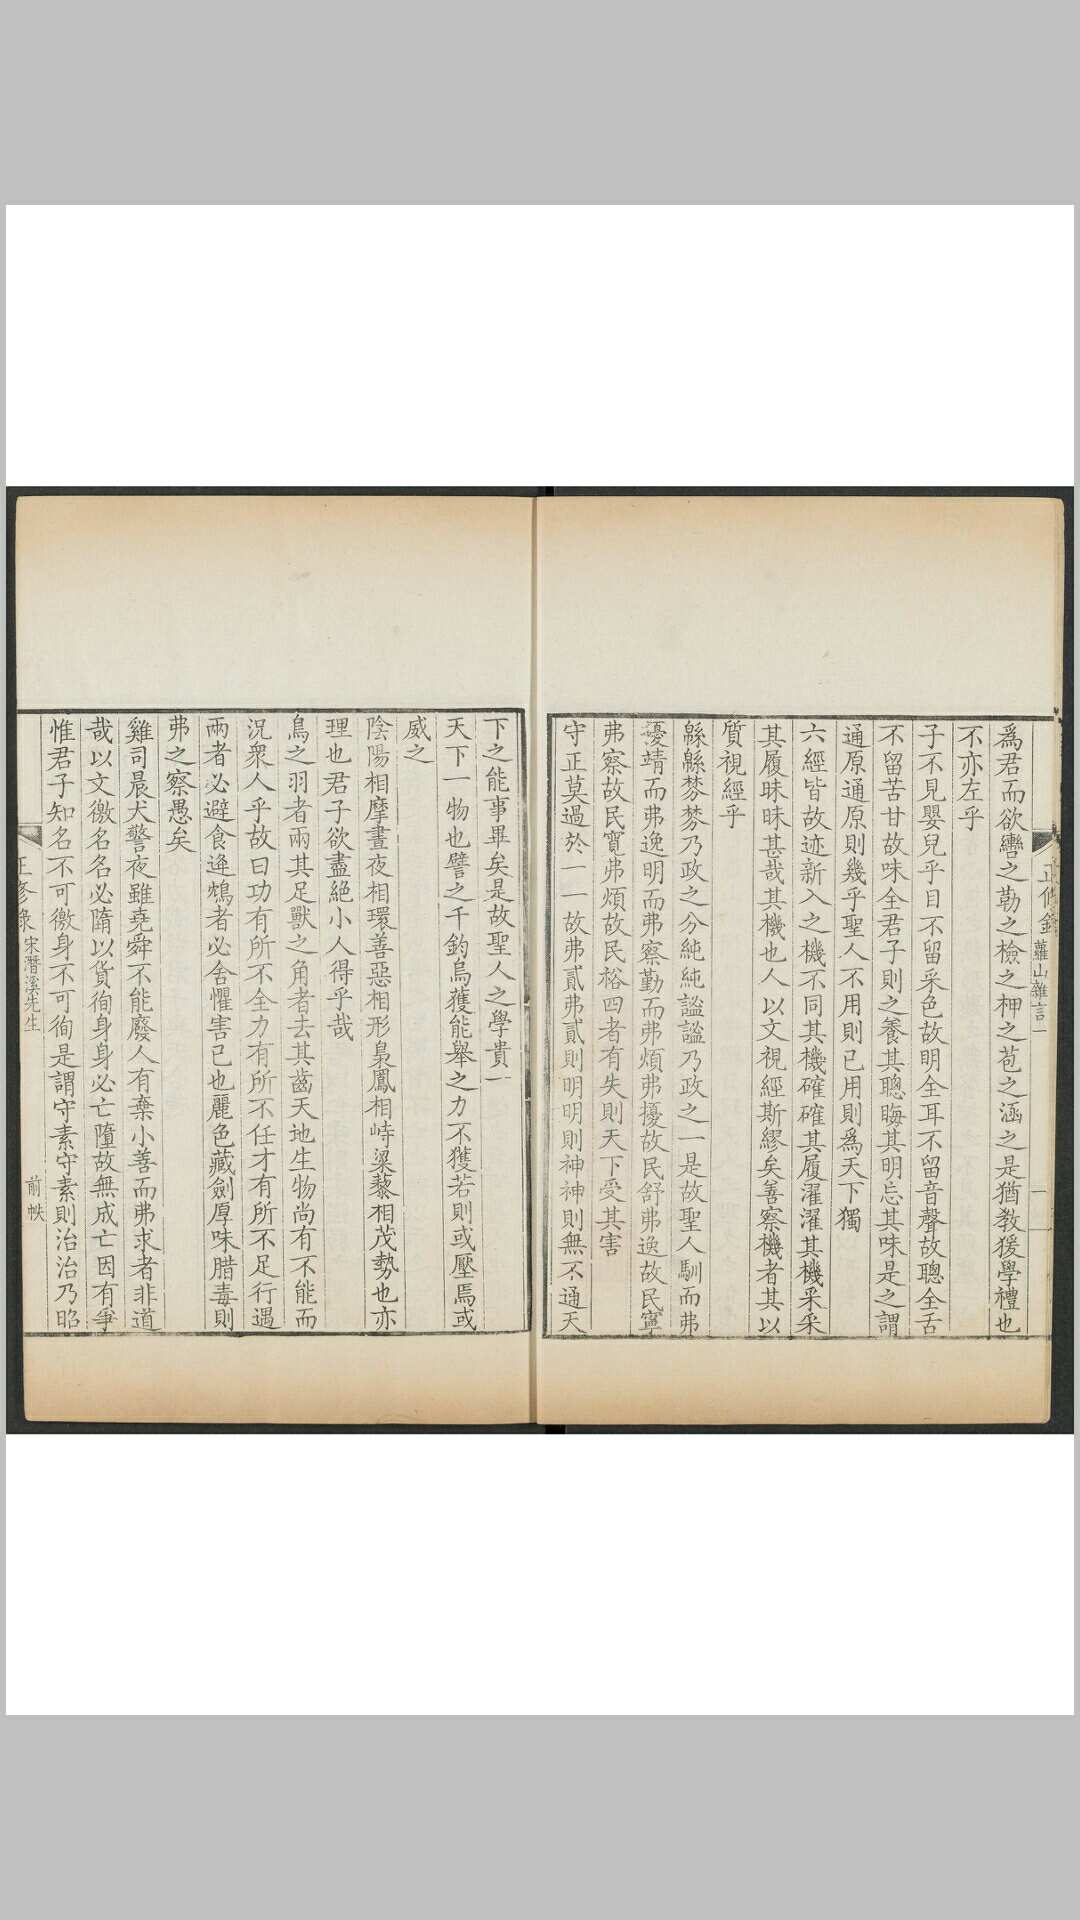 正修錄
蘿山雜言一
一
爲君而欲轡之勒之檢之柙之苞之涵之是猶敎猨學禮也
不亦左乎
子不見嬰兒乎目不留采色故明全耳不留音聲故聰全舌
不留苦甘故味全君子則之養其聰晦其明忘其味是之謂
通原通原則幾乎聖人不用則已用則爲天下獨
六經皆故迹新入之機不同其機確確其履濯濯其機采采
其履昧昧甚哉其機也人以文視經斯繆矣善察機者其以
質視經乎
緜緜棼棼乃政之分純純謐謐乃政之一是故聖人馴而弗
擾靖而弗逸明而弗察勤而弗煩弗擾故民舒弗逸故民寧
弗察故民寬弗煩故民裕四者有失則天下受其害
守正莫過於一一故弗貳弗貳則明明則神神則無不通天
下之能事畢矣是故聖人之學貴一
天下一物也譬之千鈞烏獲能舉之力不獲若則或壓焉或
威之
陰陽相摩晝夜相環善惡相形梟鳳相峙粱藜相茂勢也亦
理也君子欲盡絶小人得乎哉
鳥之羽者兩其足獸之角者去其齒天地生物尚有不能而
況衆人乎故曰功有所不全力有所不任才有所不足行遇
兩者必避食逢鴆者必舍懼害已也麗色藏劍厚味腊毒則
弗之察愚矣
雞司晨犬警夜雖堯舜不能廢人有棄小善而弗求者非道
哉以文徼名名必隳以貨徇身身必亡隳故無成亡因有爭
惟君子知名不可徼身不可徇是謂守素守素則治治乃昭
正修錄
宋潛溪先生
前帙